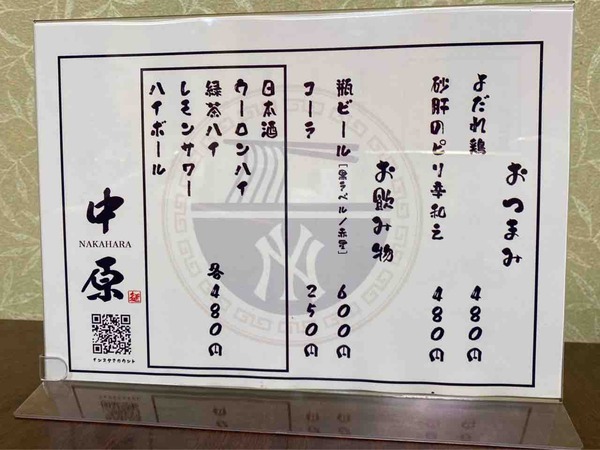 おつまみ
よだれ鶏 480円
砂肝のピリ辛和え 480円
お飲み物
瓶ビール[黒ラベル/赤星] 600円
コーラ 250円
日本酒
ウーロンハイ
緑茶ハイ 各480円
レモンサワー
ハイボール
中原
NAKAHARA
インスタアカウント